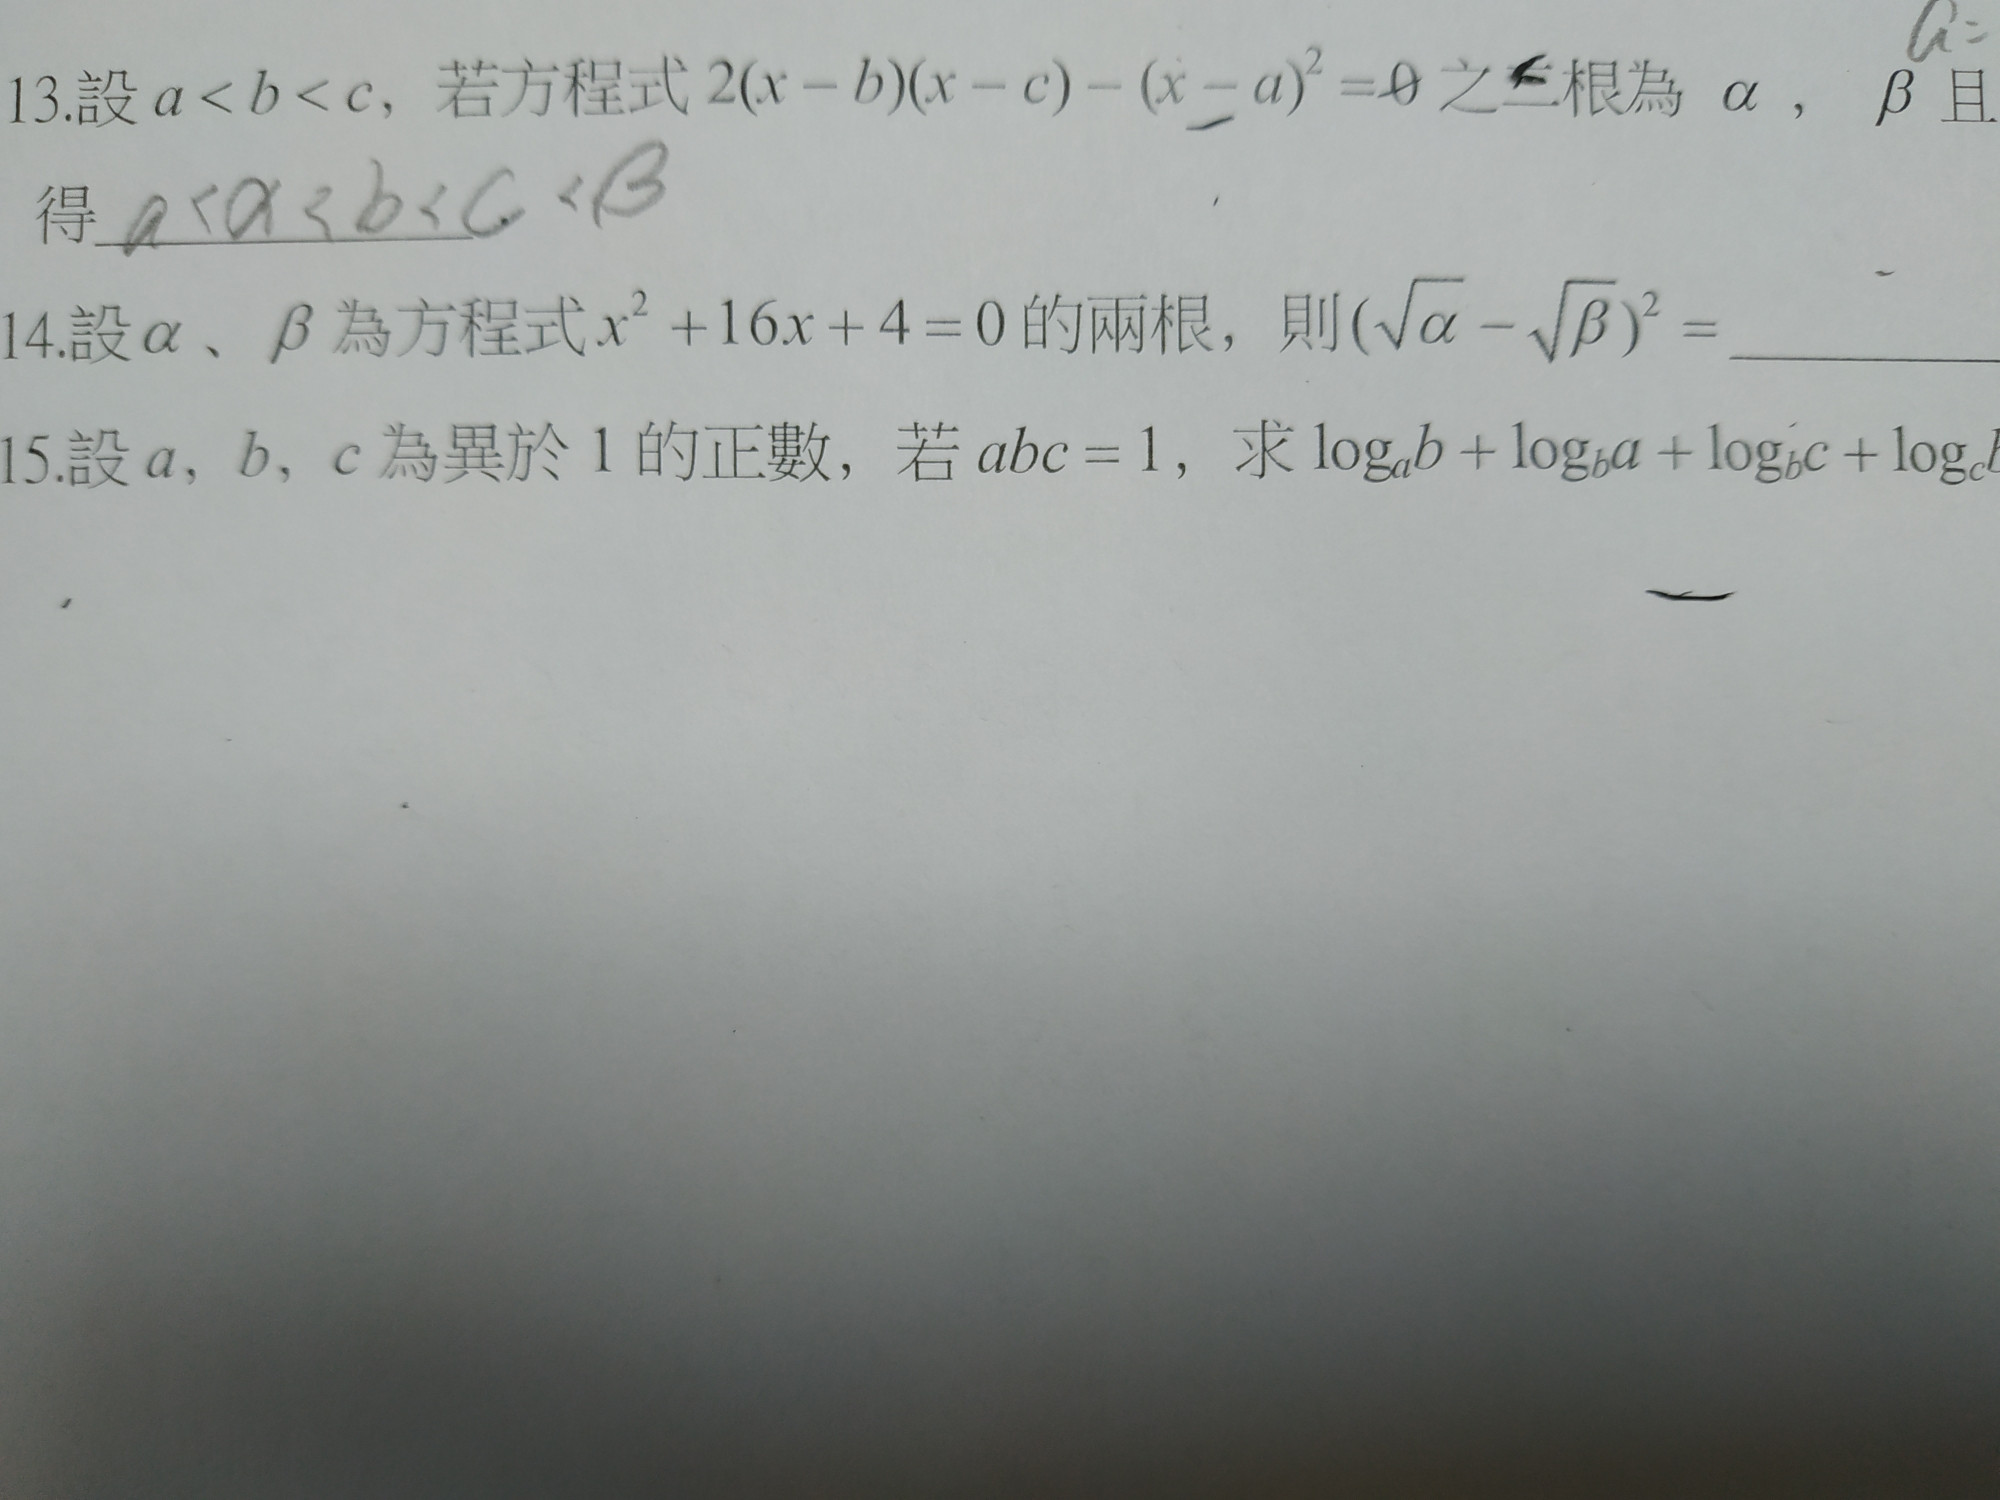 a=
13.設 a < b < c, 若方程式 2(x − b)(x − c) − (x − a)² = 0 之二根為 α , β 且
得 a < α < b < c < β
14.設 α 、 β 為方程式 x² + 16x + 4 = 0 的兩根, 則 (√α − √β)² =
15.設 a, b, c 為異於 1 的正數, 若 abc = 1, 求 logₐb + log_b a + log_b c + log_c b